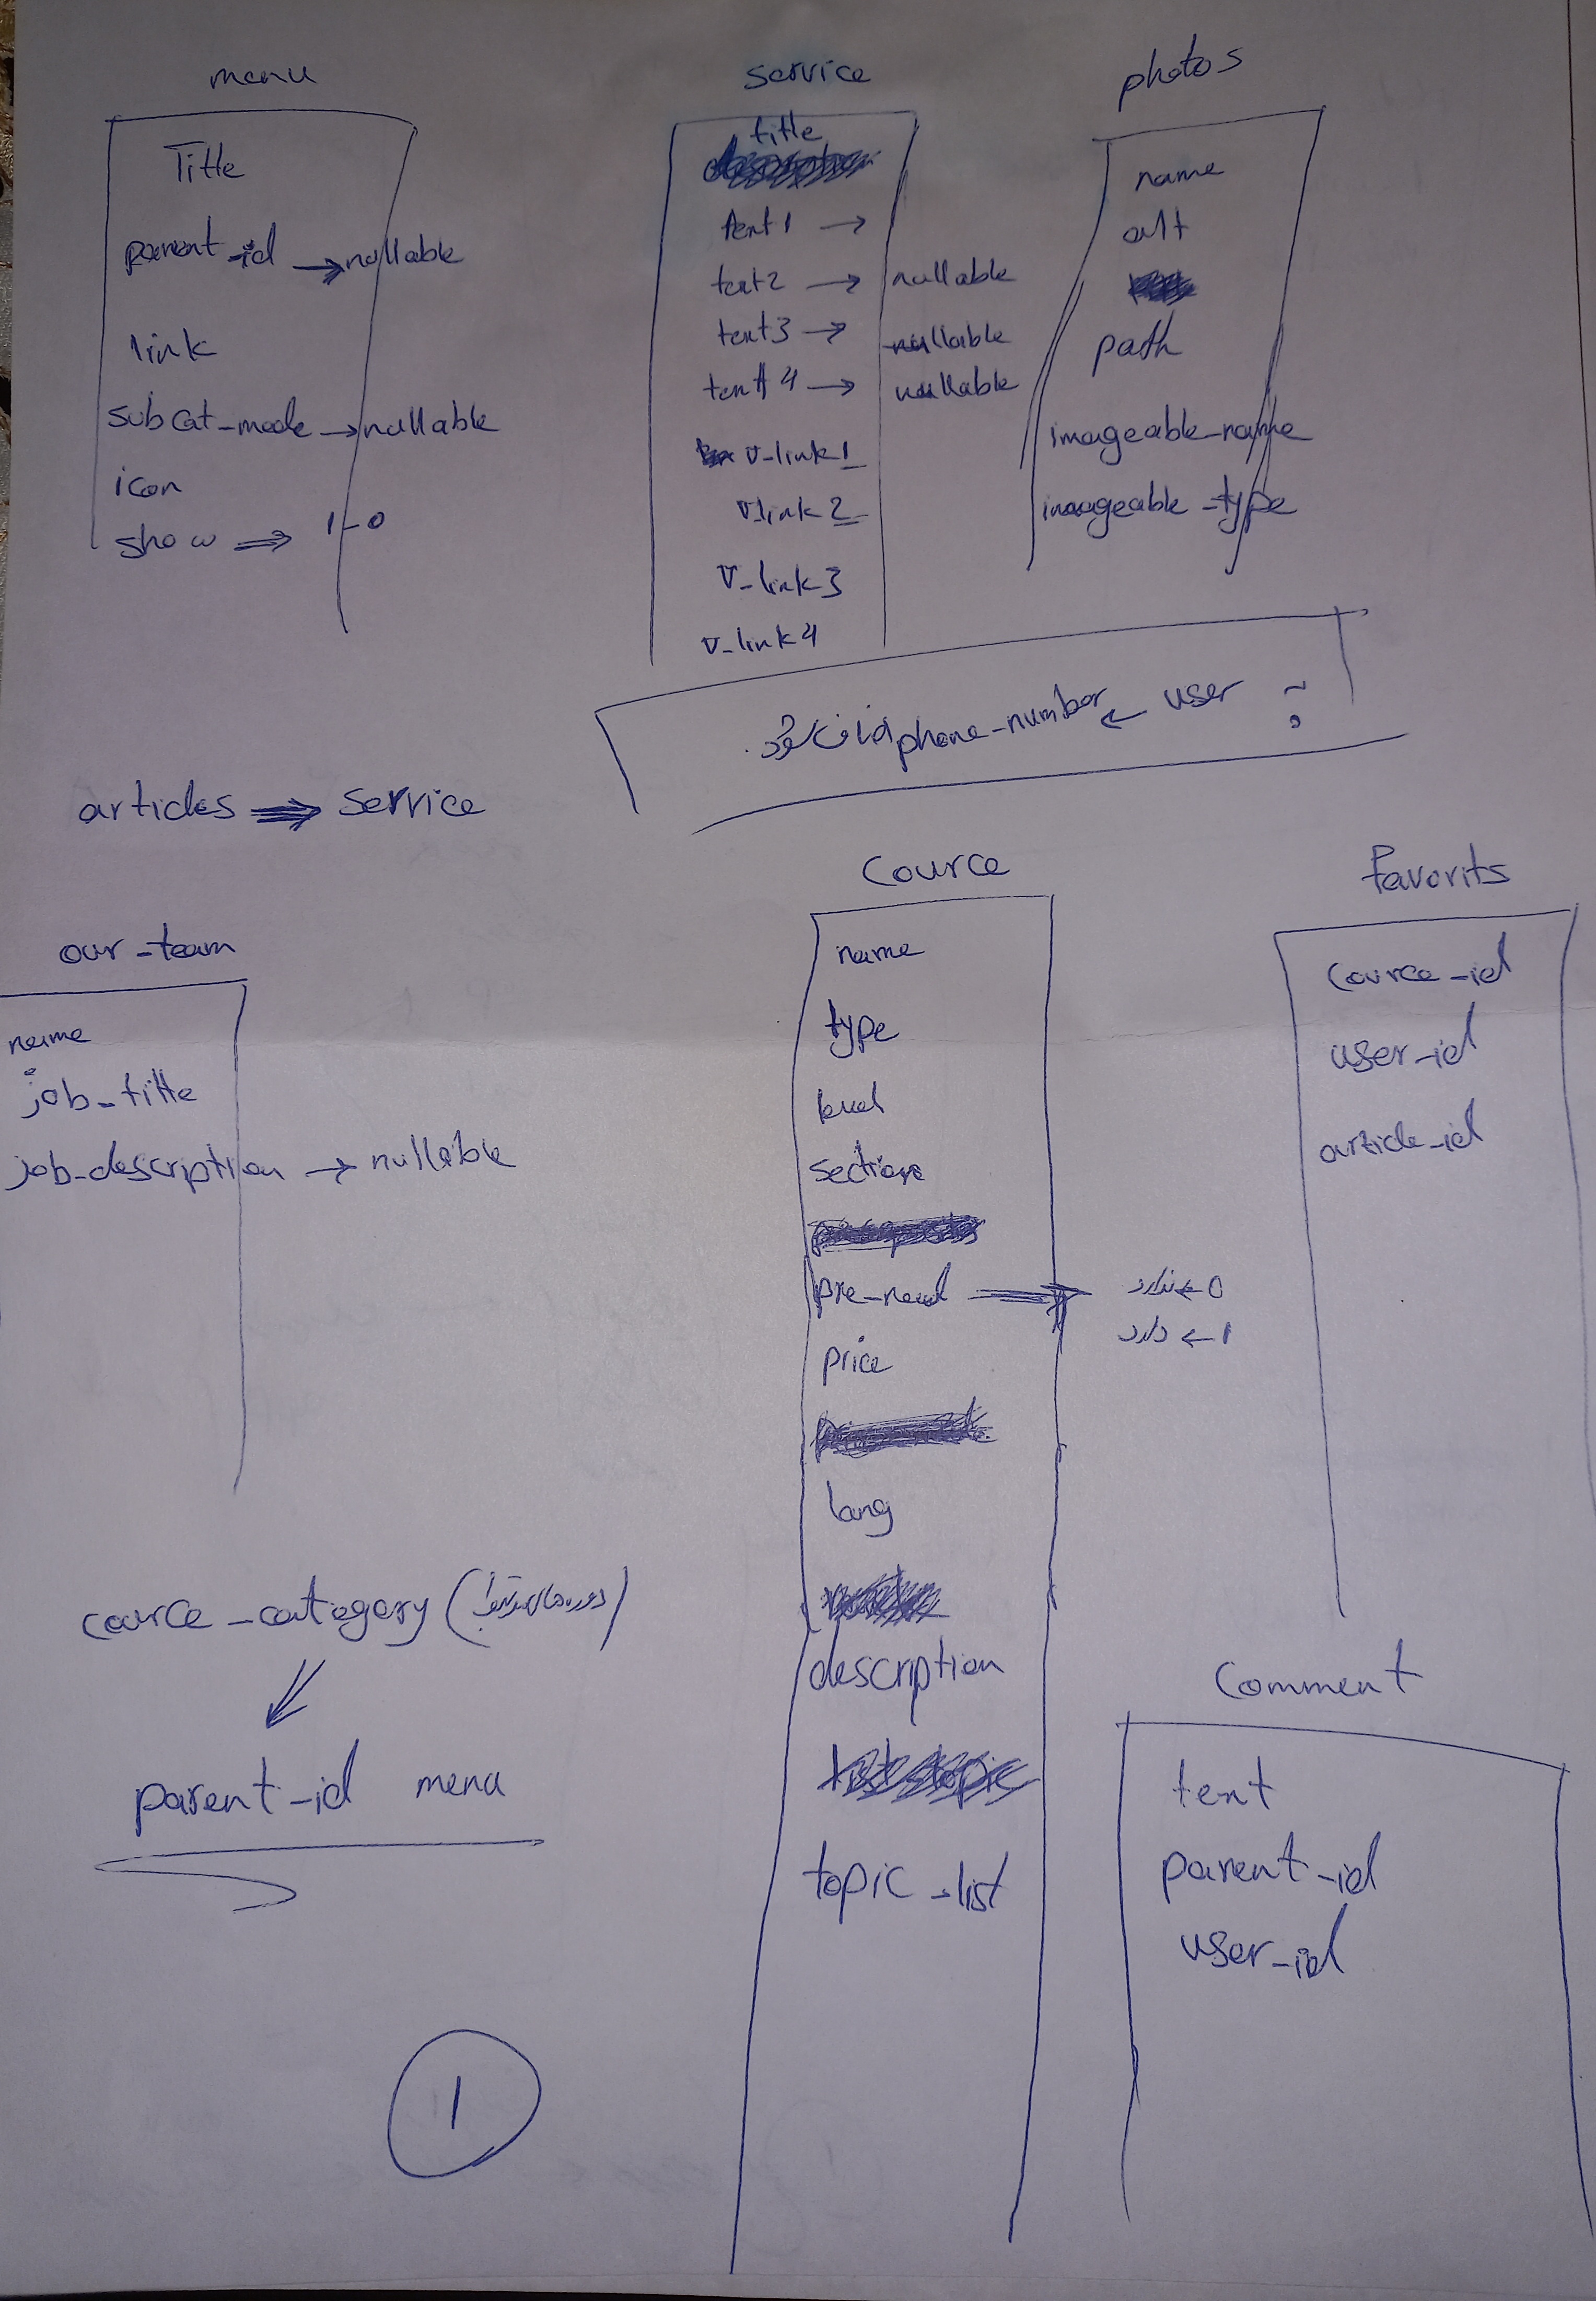 menu
Title
parent_id → nullable
link
subcat_mode → nullable
icon
show ⇒ 1-0
service
title
text1 →
text2 → nullable
text3 → nullable
text4 → nullable
v_link1
v_link2
v_link3
v_link4
photos
name
alt
path
imageable_name
imageable_type
phone_number ← user
articles ⇒ service
our_team
name
job_title
job_description → nullable
Cource
name
type
level
section
pre_need ⇒ 0 ← ندارد
1 ← دارد
price
lang
description
topic_list
Favorits
cource_id
user_id
article_id
cource_category
parent_id menu
Comment
text
parent_id
user_id
1